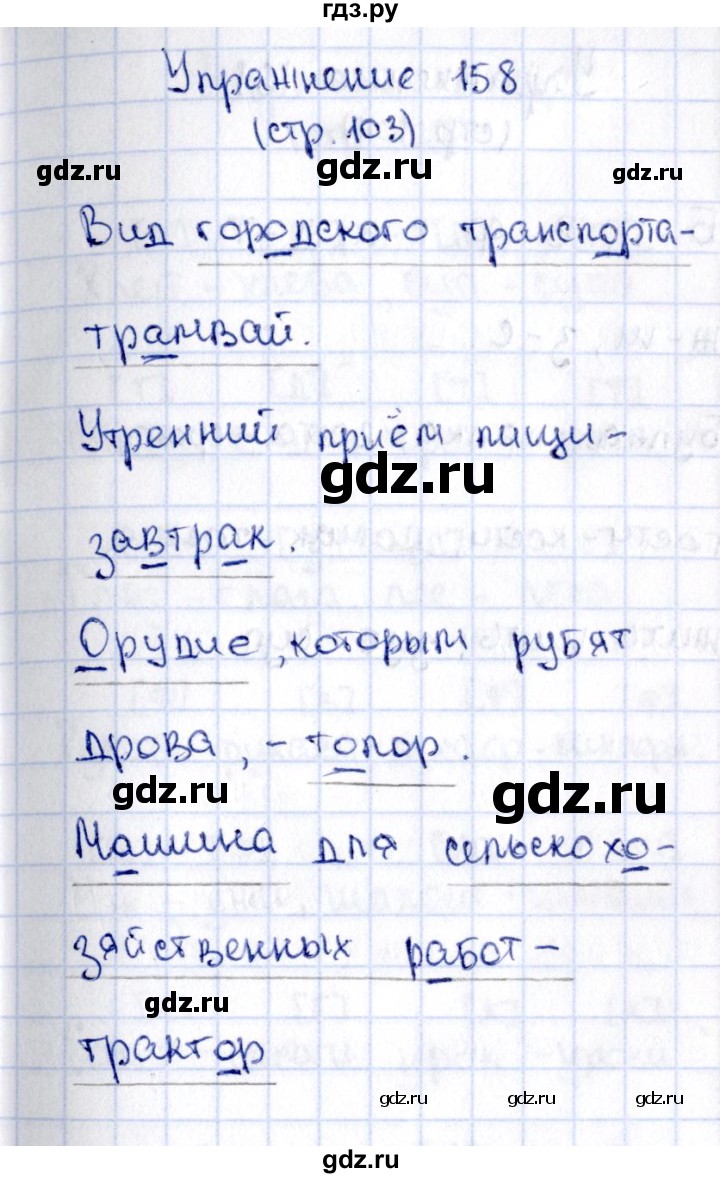 гдз.ру
Упражнение 158
(стр. 103)
gdz.ru gdz.ru gdz.ru
Вид городского транспорта-
трамвай.
Утренний приём пищи-
gdz.ru
завтрак.
Орудие, которым рубят
дрова, - топор.
gdz.ru gdz.ru
Машина для сельскохо-
зяйственных работ -
gdz.ru
трактор
gdz.ru gdz.ru
gdz.ru